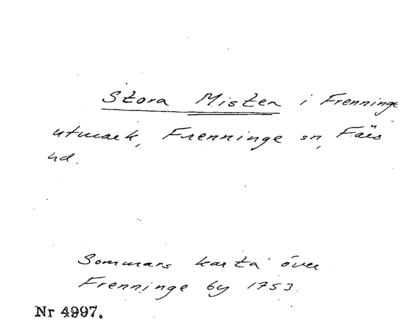 Stora Misten i Frenninge
utmark, Frenninge sn, Färs
hd.
Sommars karta över
Frenninge by 1753.
Nr 4997.